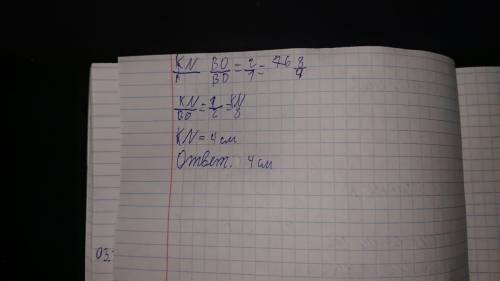 KN BO/BD = 2/1 =
KN/BO = 1/2 = KN/8
KN = 4 см
Ответ. 4 см
03.